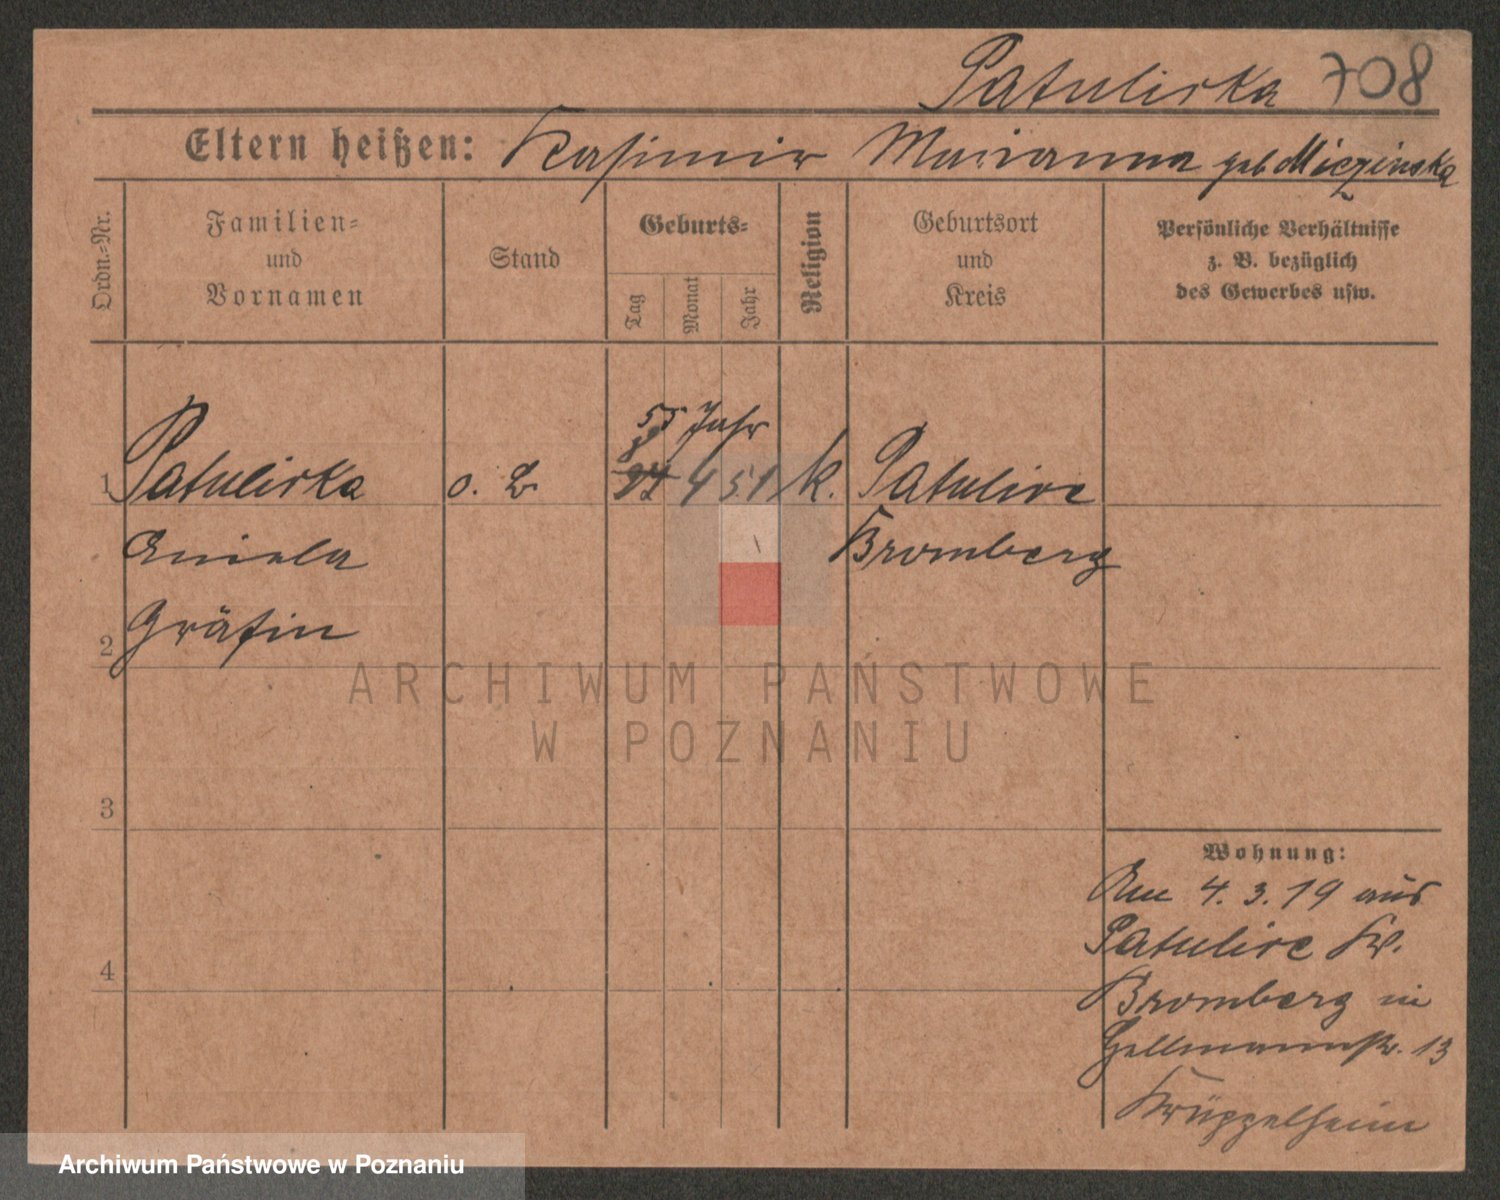 Patulirka 708
Eltern heißen: Kasimir Marianna geb Miczinska
Ordn.-Nr.
Familien-
und
Vornamen
Stand
Geburts-
Tag
Monat
Jahr
Religion
Geburtsort
und
Kreis
Persönliche Verhältnisse
z. B. bezüglich
des Gewerbes usw.
55 Jahr
1 Patulirka o. B 4 51 k. Patulire
Aniela Bromberg
2 Gräfin
3
4
Wohnung:
Am 4. 3. 19 aus
Patulire Kr.
Bromberg in
Hellmannstr. 13
Krüppelheim
ARCHIWUM PAŃSTWOWE
W POZNANIU
Archiwum Państwowe w Poznaniu